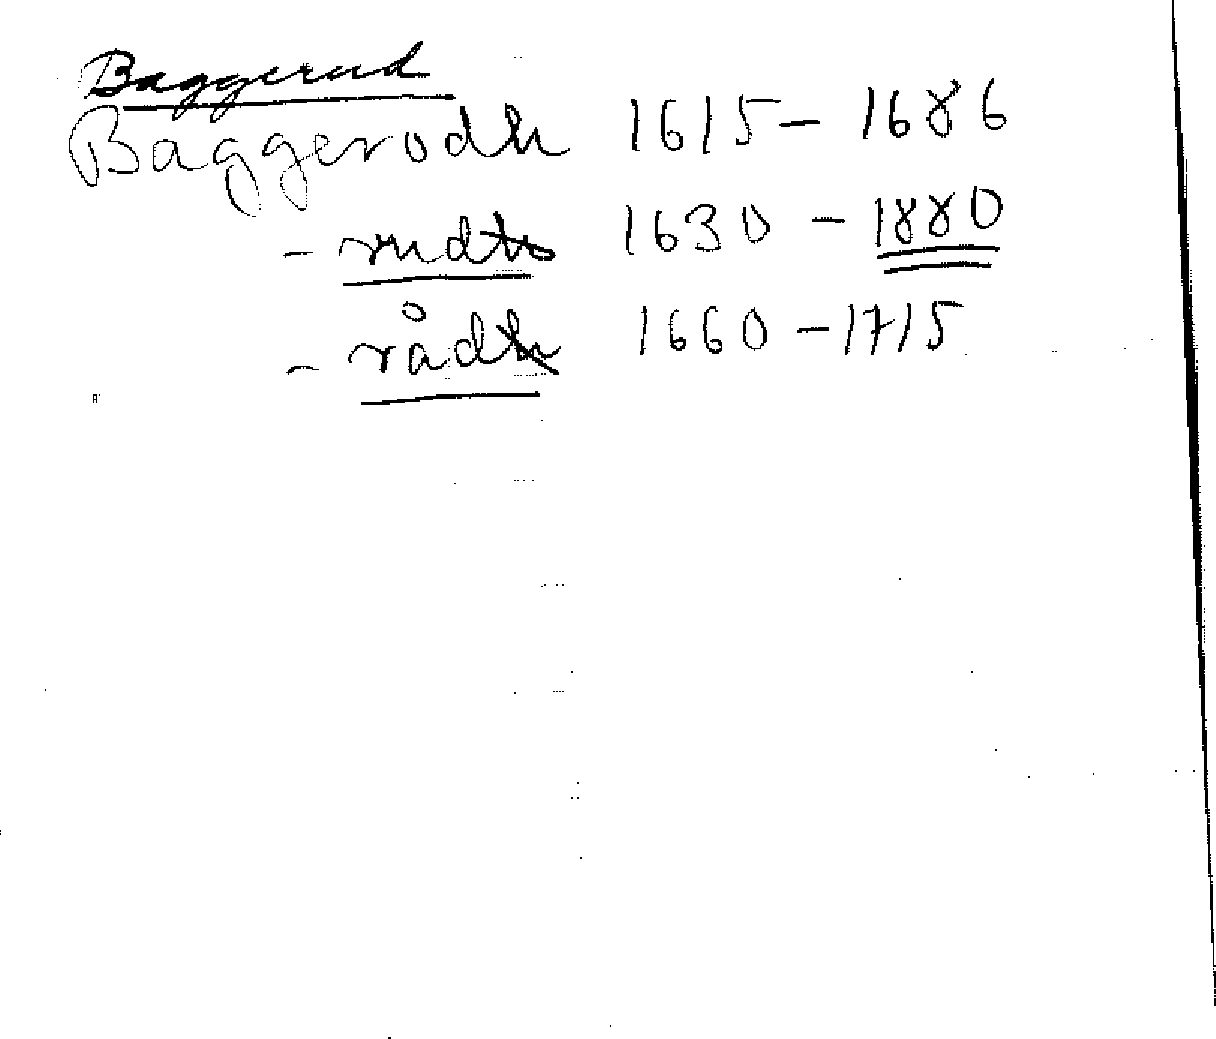 Baggerud
Baggerodh 1615 - 1686
- rudh 1630 - 1880
- rådh 1660 - 1715